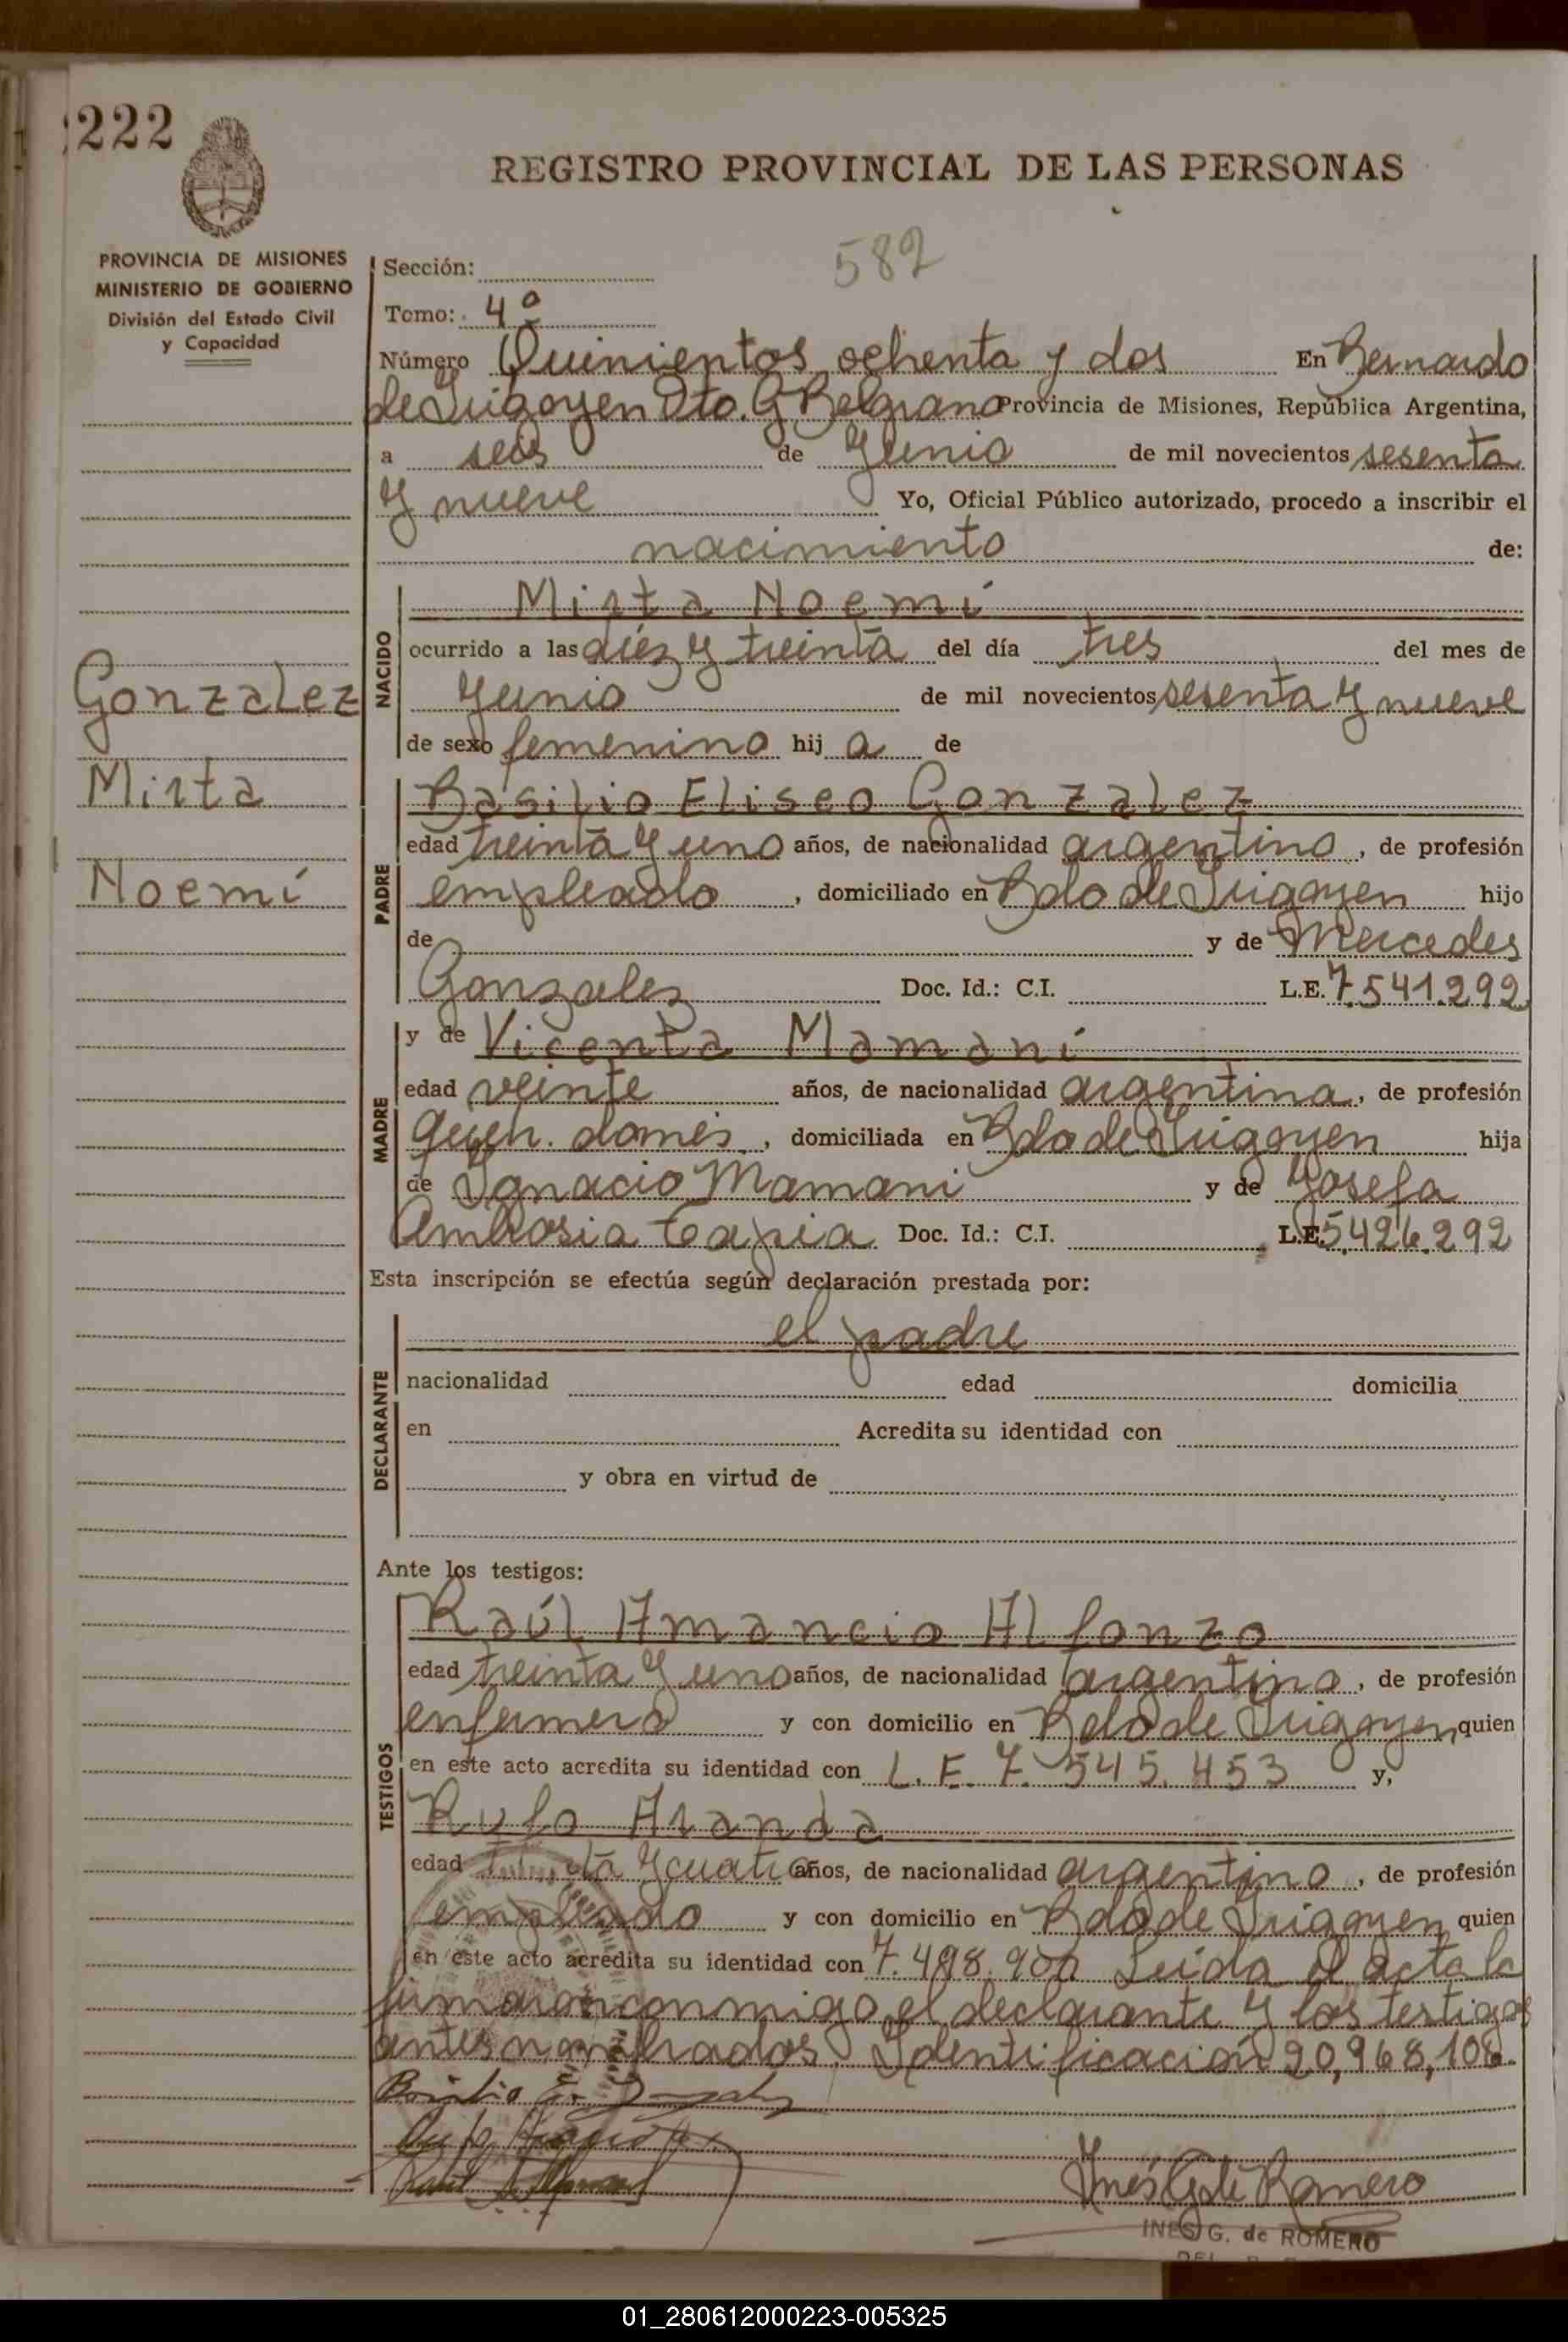 222
REGISTRO PROVINCIAL DE LAS PERSONAS
582
PROVINCIA DE MISIONES
MINISTERIO DE GOBIERNO
División del Estado Civil
y Capacidad
Sección:
Tomo: 4º
Número Quinientos ochenta y dos En Bernardo
de Irigoyen Dto. G Belgrano Provincia de Misiones, República Argentina,
a seis de Junio de mil novecientos sesenta
y nueve Yo, Oficial Público autorizado, procedo a inscribir el
nacimiento de:
Gonzalez
Mirta
Noemí
NACIDO
Mirta Noemí
ocurrido a las diez y treinta del día tres del mes de
Junio de mil novecientos sesenta y nueve
de sexo femenino hij a de
PADRE
Basilio Eliseo Gonzalez
edad treinta y uno años, de nacionalidad argentino, de profesión
empleado, domiciliado en Bdo de Irigoyen hijo
de y de Mercedes
Gonzalez Doc. Id.: C.I. L.E. 7.541.292
MADRE
y de Vicenta Mamaní
edad veinte años, de nacionalidad argentina, de profesión
queh. domés., domiciliada en Bdo de Irigoyen hija
de Ignacio Mamani y de Josefa
Ambrosia Tapia Doc. Id.: C.I. L.E. 5.426.292
Esta inscripción se efectúa según declaración prestada por:
DECLARANTE
el padre
nacionalidad edad domicilia
en Acredita su identidad con
y obra en virtud de
Ante los testigos:
TESTIGOS
Raúl Amancio Alfonzo
edad treinta y uno años, de nacionalidad argentino, de profesión
enfermero y con domicilio en Bdo de Irigoyen quien
en este acto acredita su identidad con L.E. 7.545.453 y,
Rufo Aranda
edad y cuatro años, de nacionalidad argentino, de profesión
empleado y con domicilio en Bdo de Irigoyen quien
en este acto acredita su identidad con 7.498.900 Leida el acta la
firmaron conmigo el declarante y los testigos
antes nombrados. Identificación 20,968,108.
Basilio E. Gonzalez
Inés G de Romero
INES G. de ROMERO
01_280612000223-005325